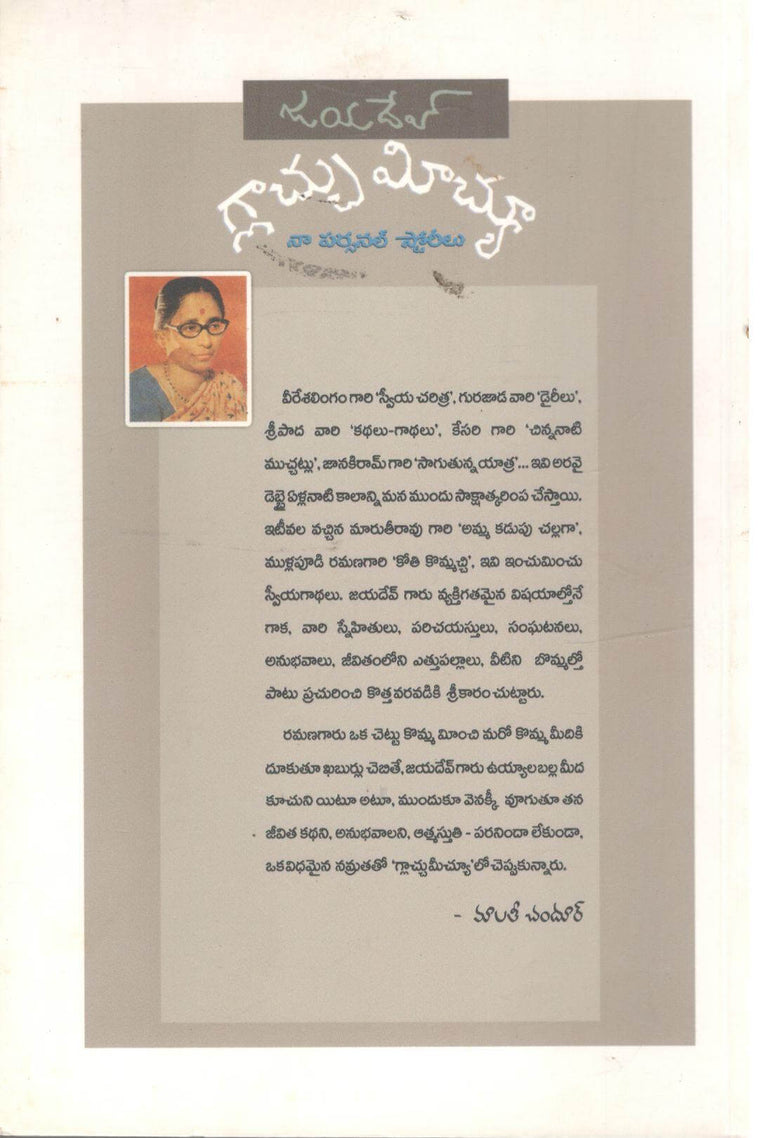 జయదేవ్
గ్లాచ్చు మీచ్యూ
నా పర్సనల్ స్టోరీలు
వీరేశలింగం గారి ‘స్వీయ చరిత్ర’, గురజాడ వారి ‘డైరీలు’,
శ్రీపాద వారి ‘కథలు-గాథలు’, కేసరి గారి ‘చిన్ననాటి
ముచ్చట్లు’, జానకిరామ్ గారి ‘సాగుతున్న యాత్ర’... ఇవి అరవై
డెబ్భై ఏళ్లనాటి కాలాన్ని మన ముందు సాక్షాత్కరింప చేస్తాయి.
ఇటీవల వచ్చిన మారుతీరావు గారి ‘అమ్మ కడుపు చల్లగా’,
ముళ్లపూడి రమణగారి ‘కోతి కొమ్మచ్చి’, ఇవి ఇంచుమించు
స్వీయగాథలు. జయదేవ్ గారు వ్యక్తిగతమైన విషయాల్తోనే
గాక, వారి స్నేహితులు, పరిచయస్తులు, సంఘటనలు,
అనుభవాలు, జీవితంలోని ఎత్తుపల్లాలు, వీటిని బొమ్మల్తో
పాటు ప్రచురించి కొత్త వరవడికి శ్రీకారం చుట్టారు.
రమణగారు ఒక చెట్టు కొమ్మ మించి మరో కొమ్మ మీదికి
దూకుతూ ఖబుర్లు చెబితే, జయదేవ్‌గారు ఉయ్యాలబల్ల మీద
కూచుని యిటూ అటూ, ముందుకూ వెనక్కీ వూగుతూ తన
జీవిత కథని, అనుభవాలని, ఆత్మస్తుతి - పరనిందా లేకుండా,
ఒకవిధమైన నమ్రతతో ‘గ్లాచ్చుమీచ్యూ’లో చెప్పుకున్నారు.
- మాలతీ చందూర్